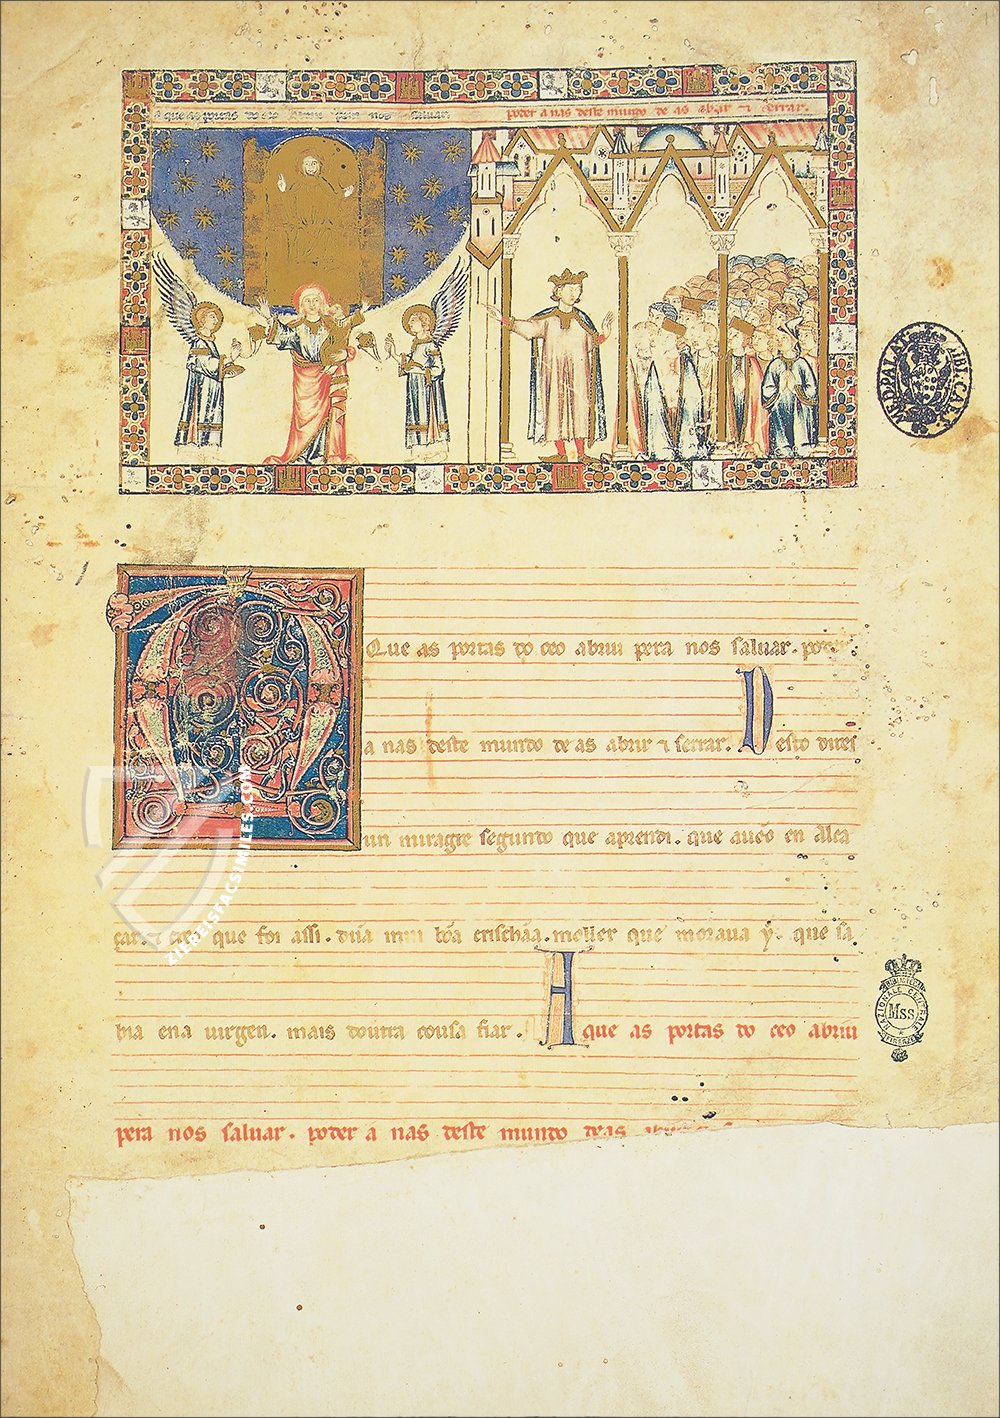 a que as portas do ceo abriu pera nos saluar.
poder a nas deste mundo de as abrir ⁊ serrar.
Que as portas do ceo abriu pera nos saluar. poder
a nas deste mundo de as abrir ⁊ serrar. D esto dires
un miragre segundo que aprendi. que aueo en Alca
çar. ⁊ creo que foi assi. dũa mui bõa crischãa. moller que morava y. que sa
bia ena uirgen. mais doutra cousa fiar. A que as portas do ceo abriu
pera nos saluar. poder a nas deste mundo deas
ED. PALAT. BIBL. CAES.
BIBLIOTECA NAZIONALE CENTRALE
Mss
FIRENZE
ZIEREISFACSIMILES.COM